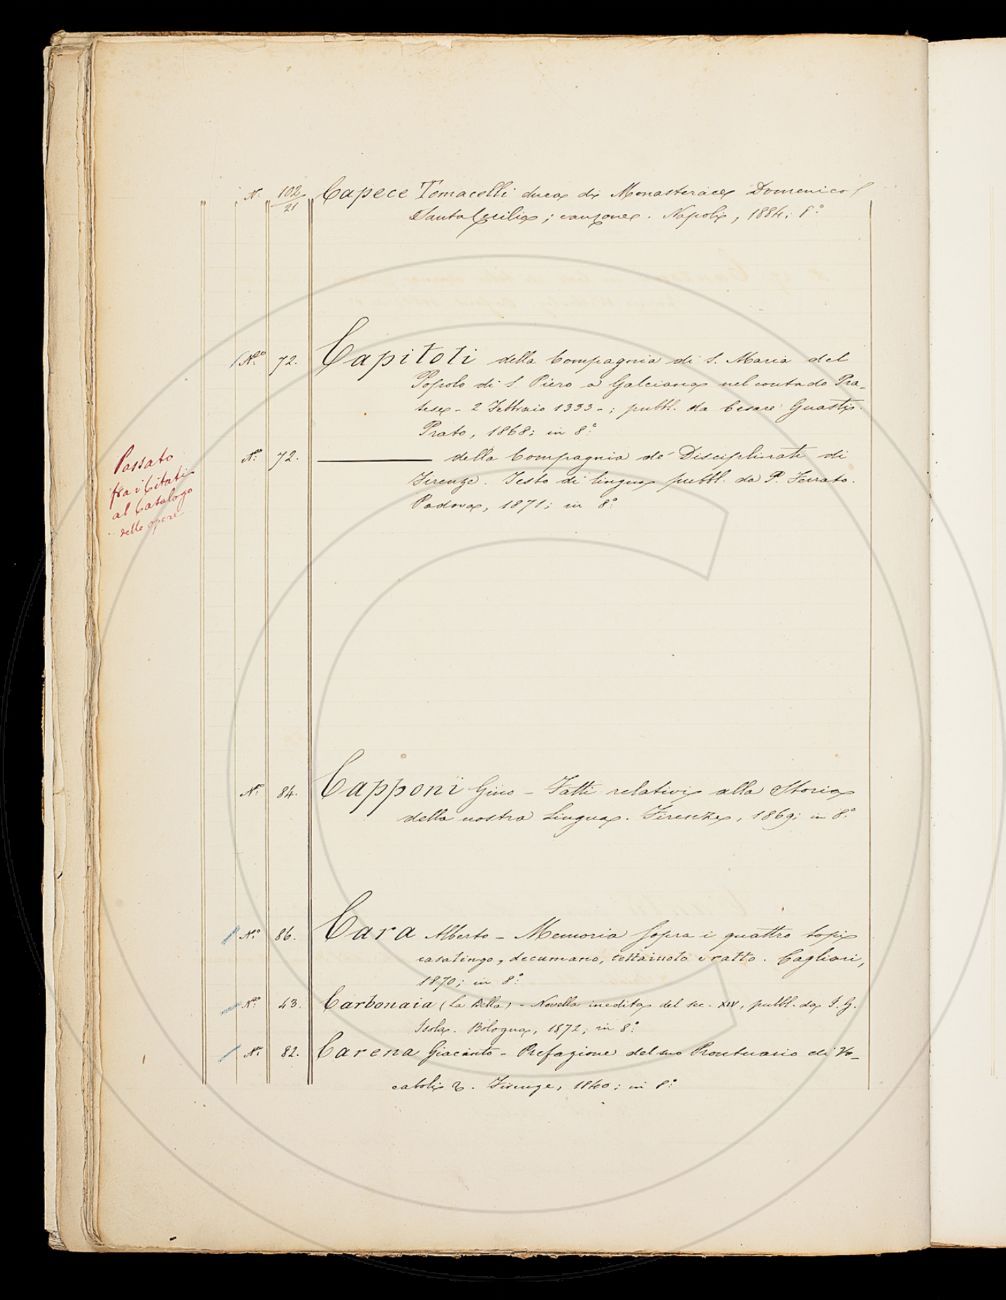 N. 102/21 Capece Tomacelli duca di Monasterace Domenico
Santa Cecilia; canzone. Napoli, 1884; 8.º
N.º 72. Capitoli della Compagnia di S. Maria del
Popolo di S. Piero a Galciana nel contado Pra-
tese - 2 Febbraio 1333 -; pubbl. da Cesare Guasti.
Prato, 1868; in 8.º
N.º 72. ——— della Compagnia de' Disciplinati di
Firenze. Testo di lingua pubbl. da P. Ferrato.
Padova, 1871; in 8.º
Passato
fra i Citati
al Catalogo
delle opere
N.º 84. Capponi Gino - Fatti relativi alla Storia
della nostra Lingua. Firenze, 1869; in 8.º
N.º 86. Cara Alberto - Memoria sopra i quattro topi
casalingo, decumano, tettaiuolo e ratto. Cagliari,
1870; in 8.º
N.º 43. Carbonaia (La Bella) - Novella inedita del sec. XIV, pubbl. da I. G.
Isola. Bologna, 1872; in 8.º
N.º 82. Carena Giacinto - Prefazione del suo Prontuario di Vo-
caboli. Firenze, 1840; in 8.º